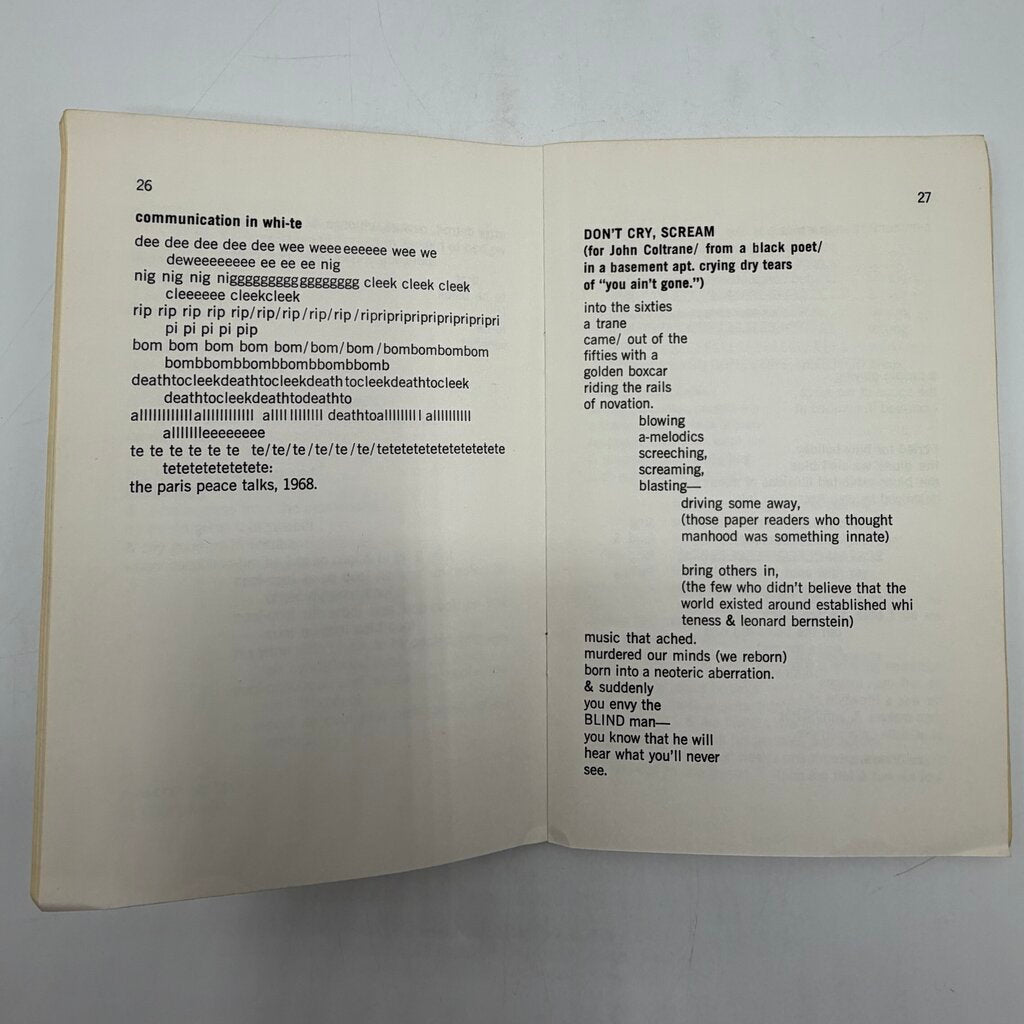 26
communication in whi-te
dee dee dee dee dee wee weeeeeeeee wee we
deweeeeeeee ee ee ee nig
nig nig nig niggggggggggggggggg cleek cleek cleek
cleeeeee cleekcleek
rip rip rip rip rip/rip/rip/rip/rip/ripripripripripripripripri
pi pi pi pi pip
bom bom bom bom bom/bom/bom/bombombombom
bombbombbombbombbombbomb
deathtocleekdeathtocleekdeathtocleekdeathtocleek
deathtocleekdeathtodeathto
allllllllllllallllllllllll allllllllllll deathtoallllllll allllllllll
alllllleeeeeeee
te te te te te te te/te/te/te/te/te/tetetetetetetetetetete
tetetetetetete:
the paris peace talks, 1968.
27
DON'T CRY, SCREAM
(for John Coltrane/ from a black poet/
in a basement apt. crying dry tears
of "you ain't gone.")
into the sixties
a trane
came/ out of the
fifties with a
golden boxcar
riding the rails
of novation.
blowing
a-melodics
screeching,
screaming,
blasting—
driving some away,
(those paper readers who thought
manhood was something innate)
bring others in,
(the few who didn't believe that the
world existed around established whi
teness & leonard bernstein)
music that ached.
murdered our minds (we reborn)
born into a neoteric aberration.
& suddenly
you envy the
BLIND man—
you know that he will
hear what you'll never
see.